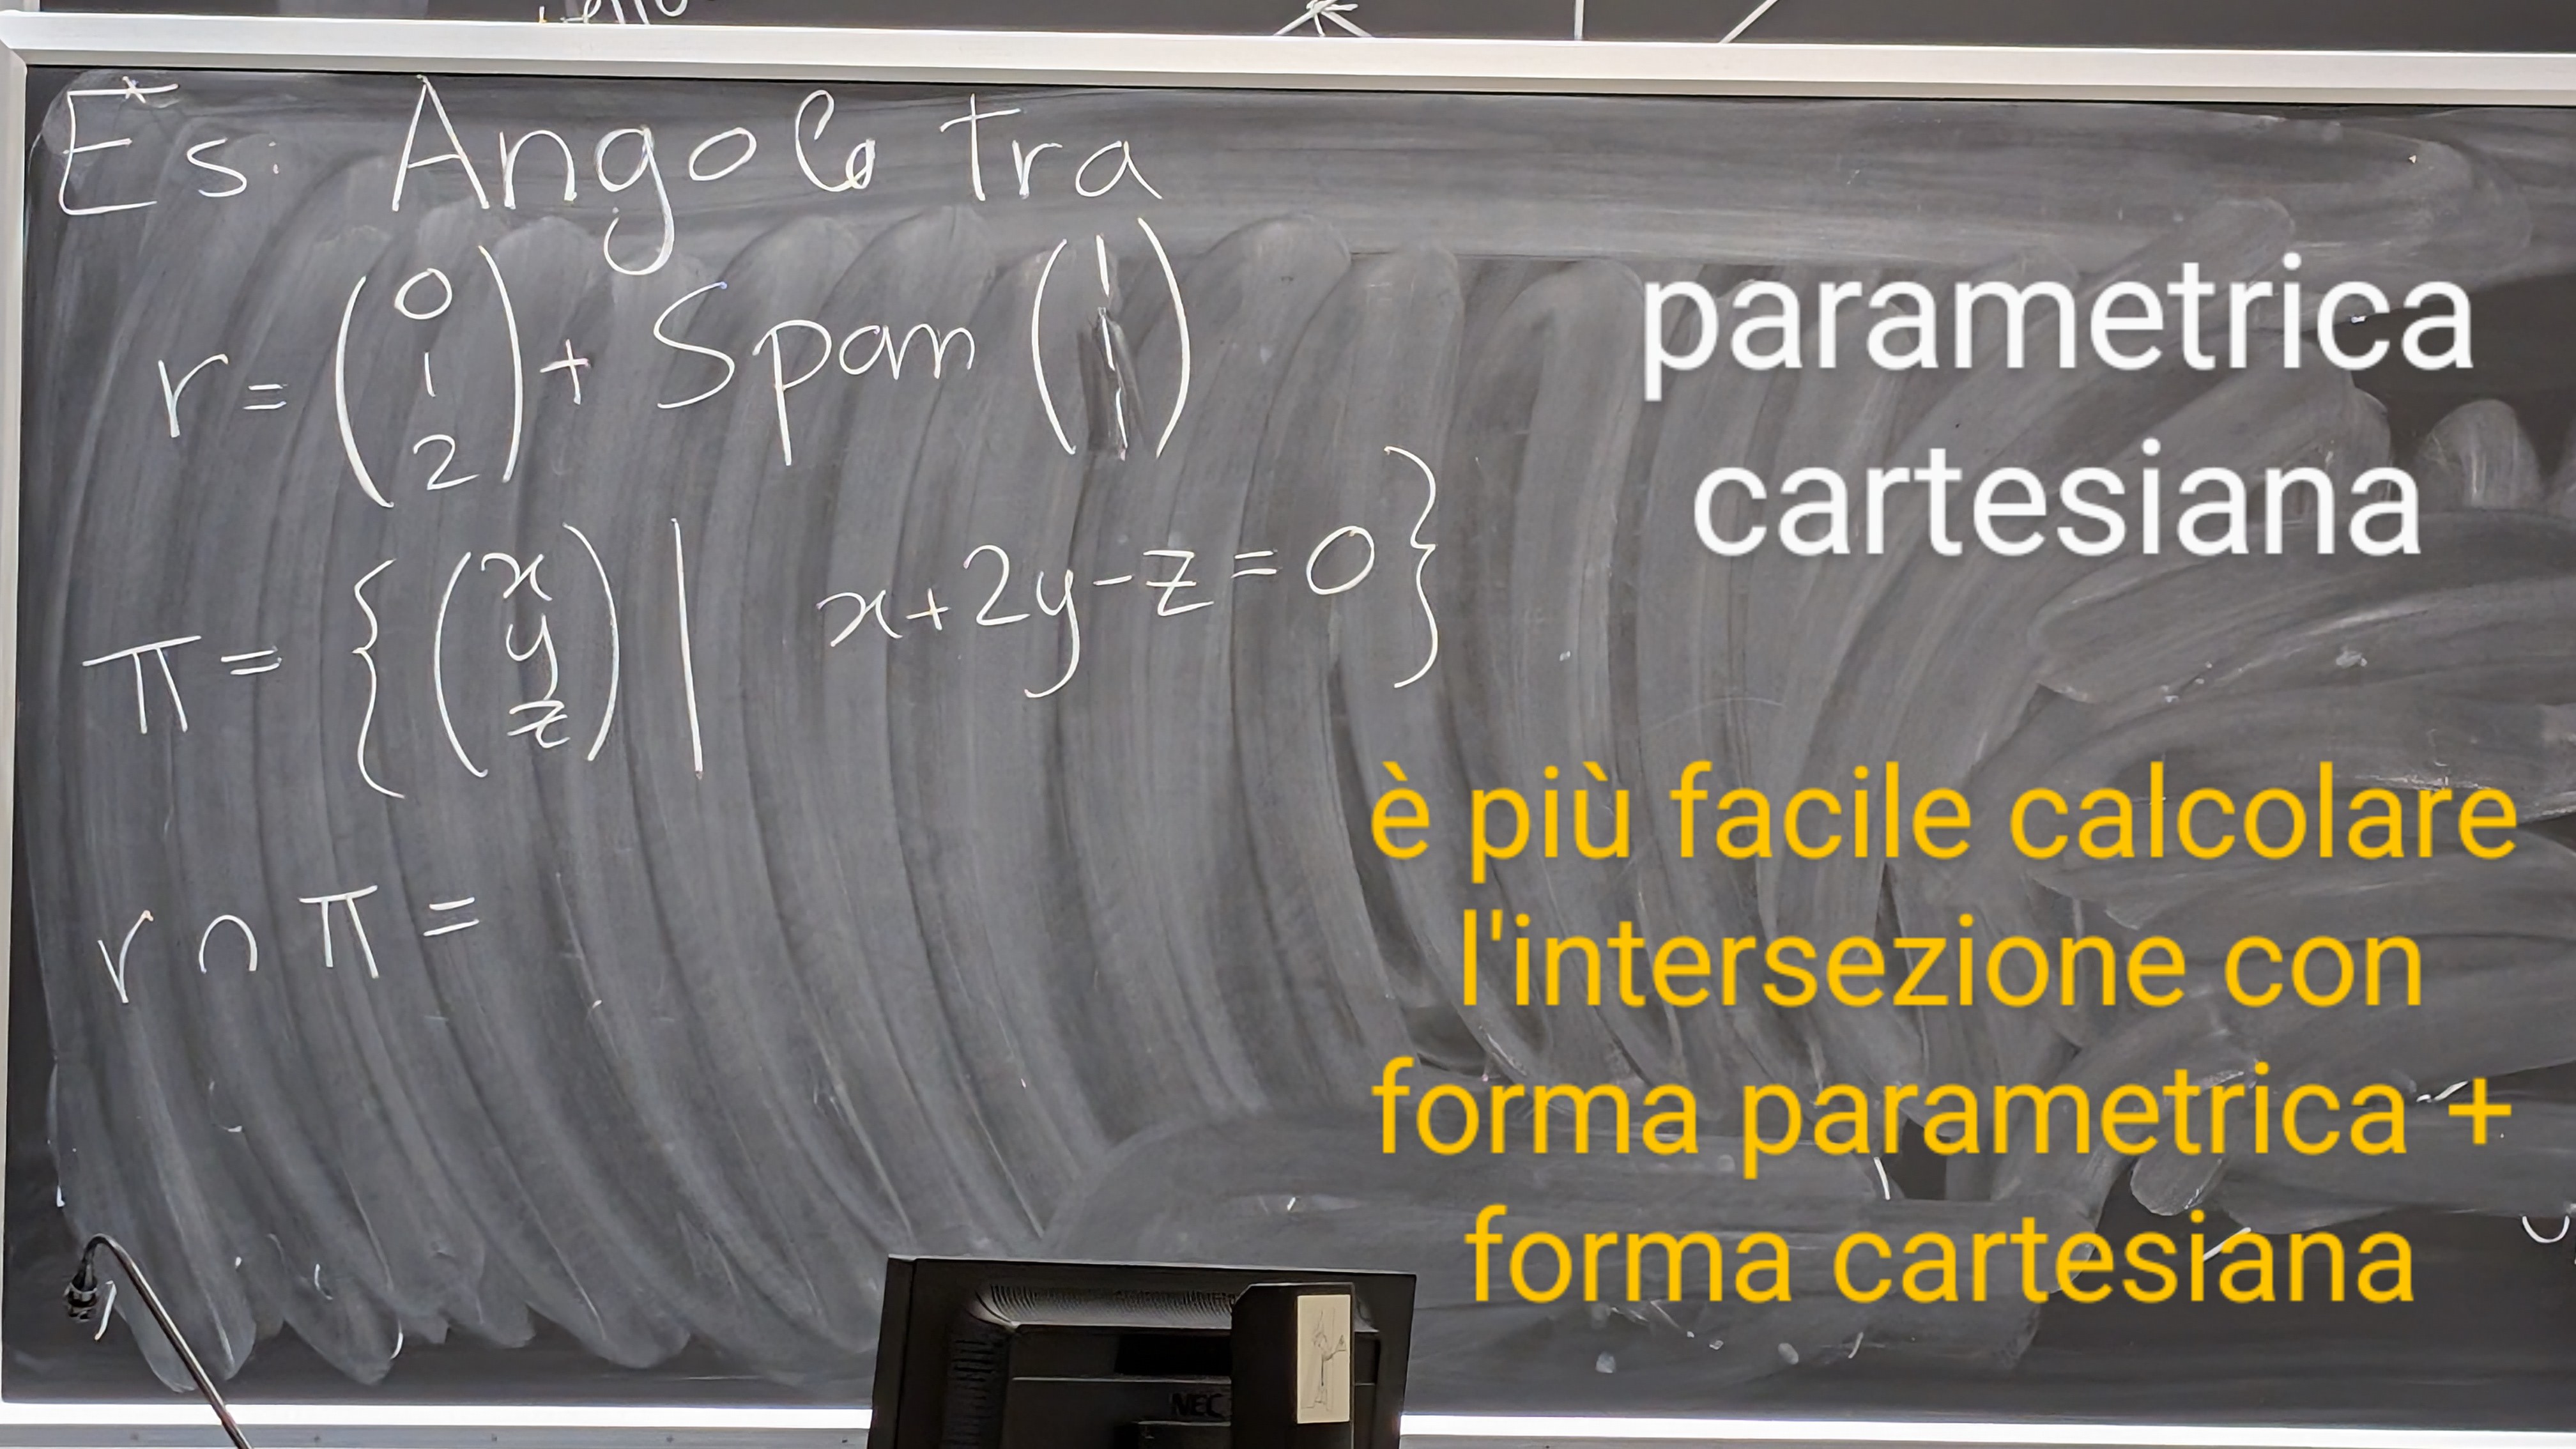 Es. Angolo tra
r = (0 1 2) + Span (1 1 1)
parametrica
π = { (x y z) | x+2y-z=0 }
cartesiana
r ∩ π =
è più facile calcolare
l'intersezione con
forma parametrica +
forma cartesiana
NEC